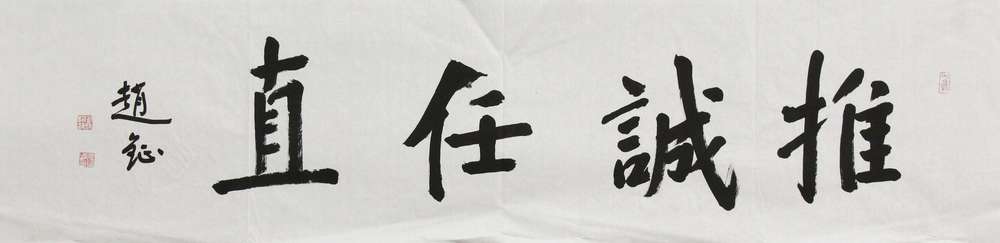 推誠任直
趙鉦